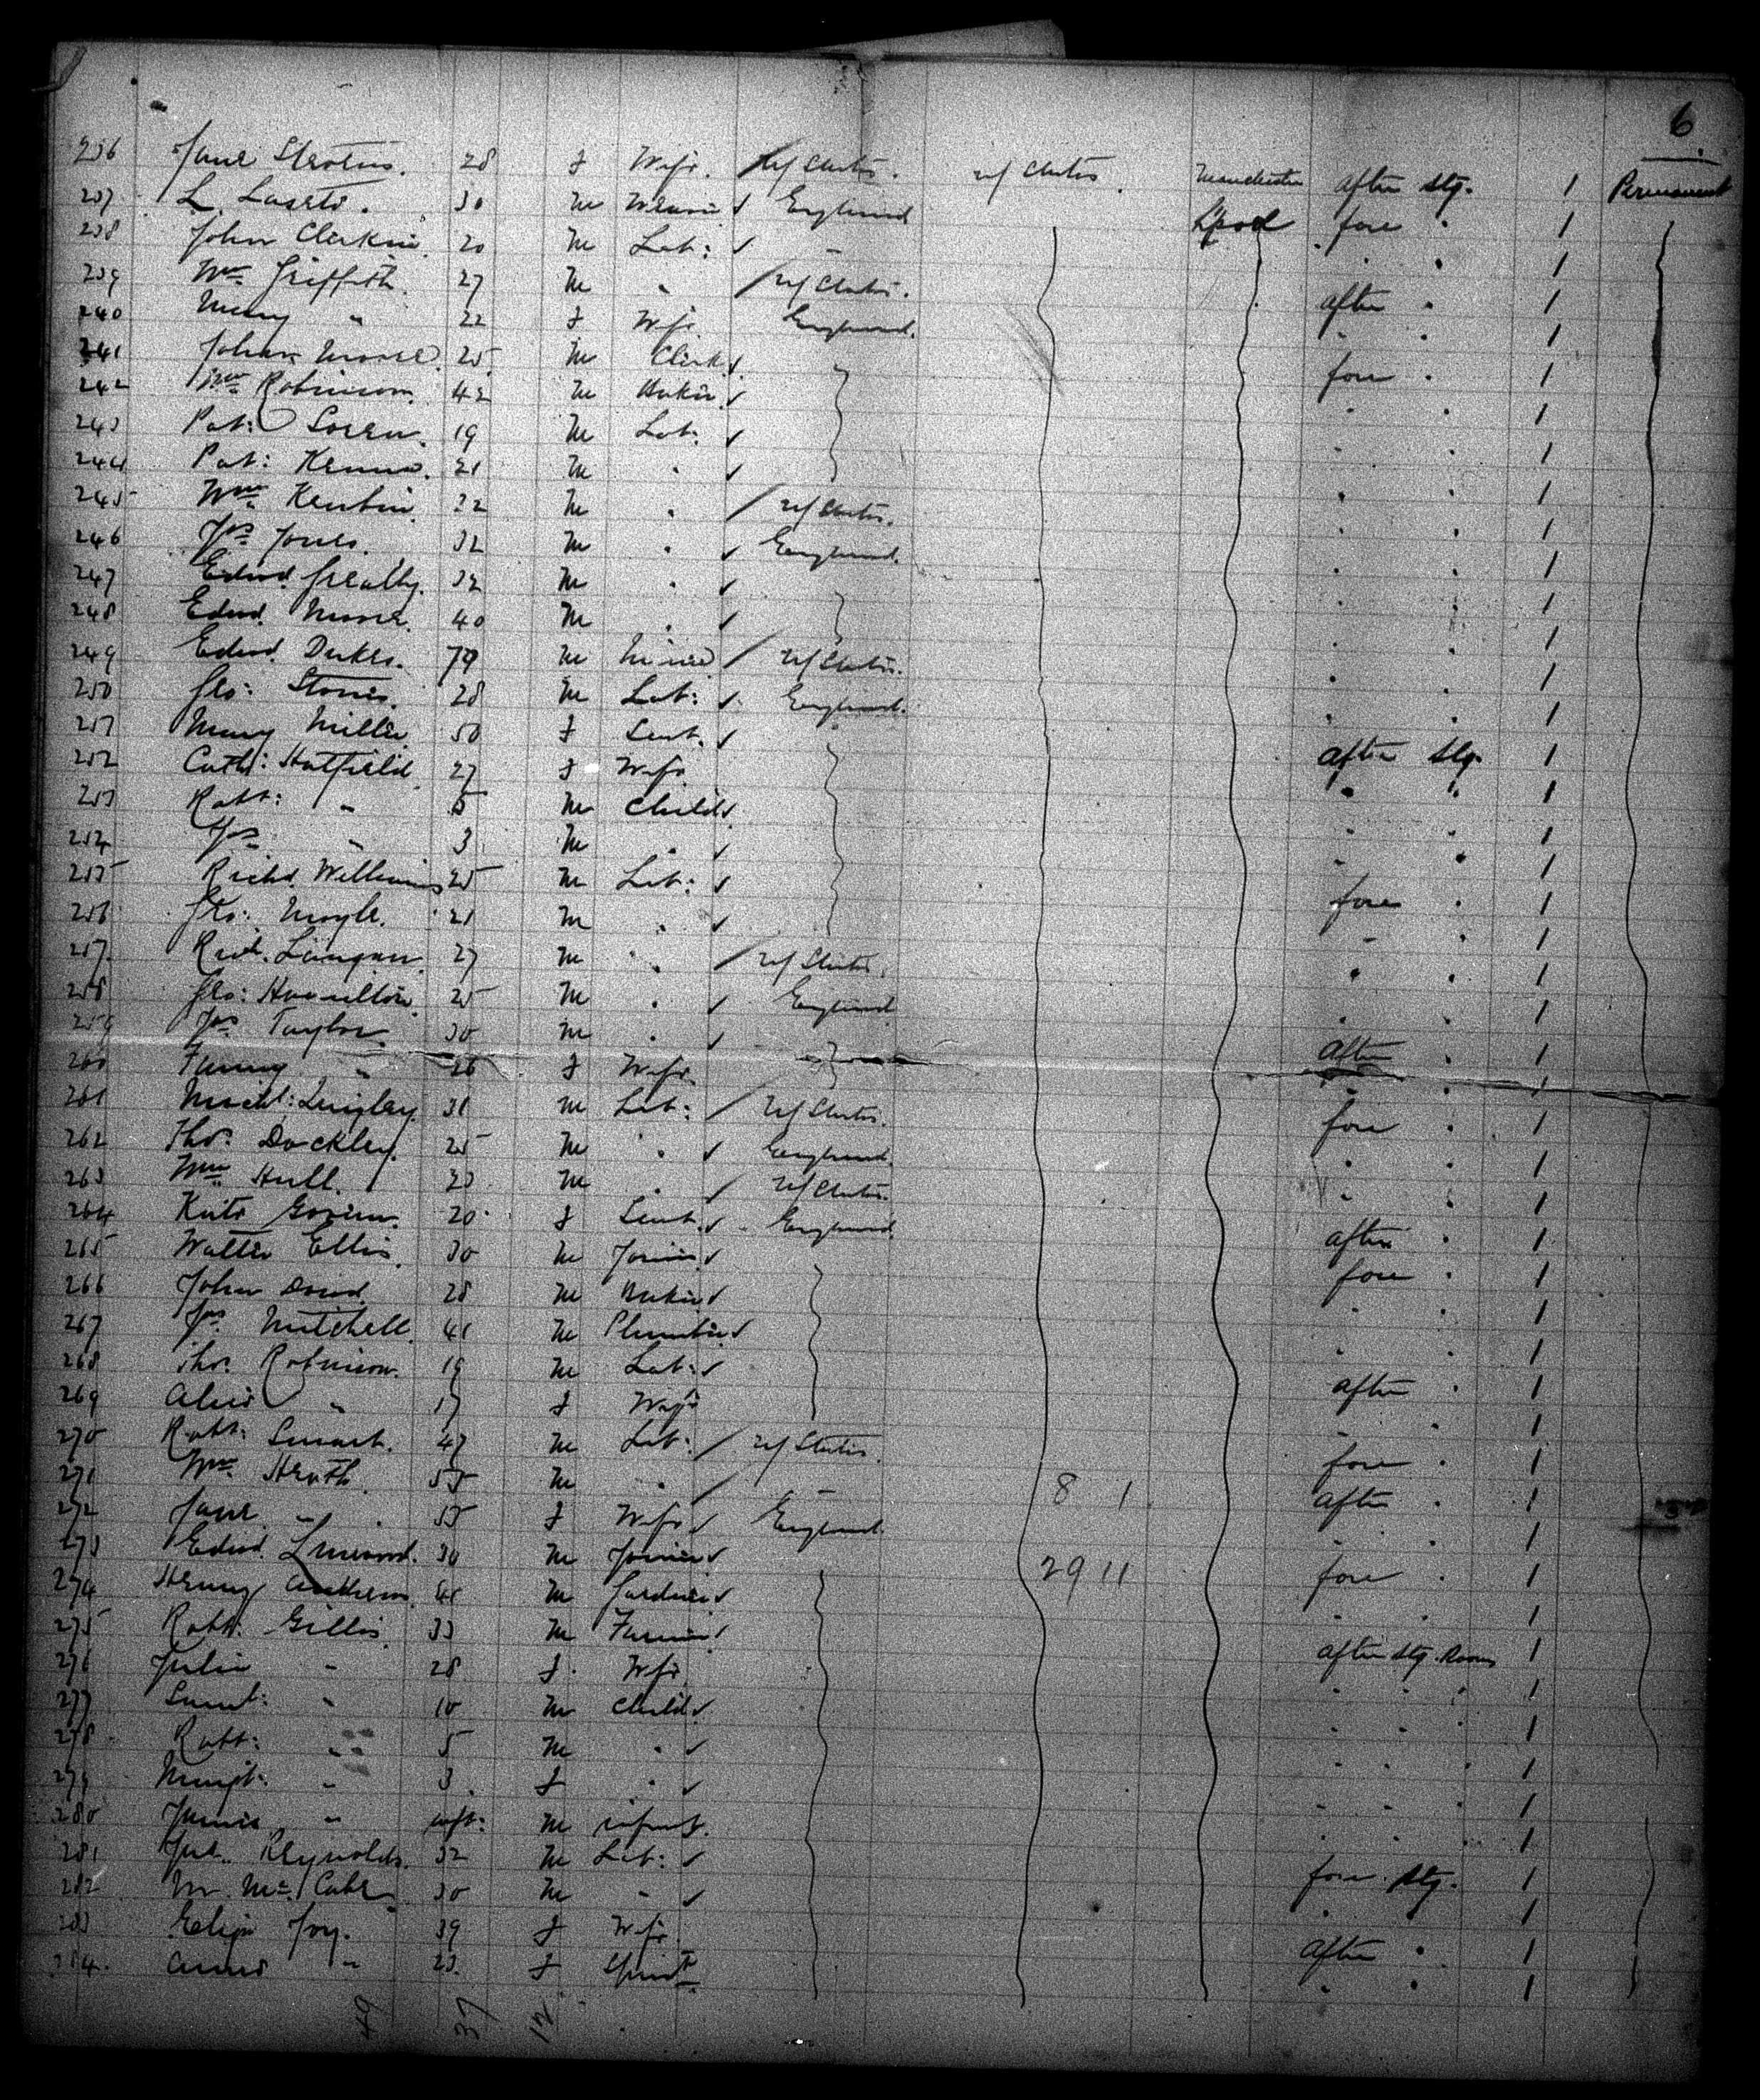 6
236 Jane 28 f Wife. U/States. U/States. Manchester after Stg. 1 Permanent
237 L. 30 m England L'pool fore " 1
238 John Clarkin 20 m Lab: - " 1
239 Wm Griffith. 27 m " U/States. after " 1
240 Mary " 22 f Wife England. " " 1
241 Moore 25 m Clerk fore " 1
242 Wm Robinson. 42 m Baker " " 1
243 Pat: 19 m Lab: " " 1
244 Pat: 21 m " " " 1
245 Wm 22 m " U/States. " " 1
246 Jas Jones. 32 m " England. " " 1
247 Edwd. Greally. 32 m " " " 1
248 Edwd. Moore. 40 m " " " 1
249 Edwd. Dukes. m Miner U/States. " " 1
250 Geo: 28 m Lab: England. " " 1
251 Mary Miller 50 f Servt. after Stg. 1
252 Cath: Hatfield 27 f Wife " " 1
253 Robt: " 5 m Child " " 1
254 Jas " 3 m " " " 1
255 Richd. Williams 25 m Lab: fore " 1
256 Geo: Moyle. 21 m " " " 1
257 Langan 27 m " U/States. " " 1
258 Geo: Hamilton 25 m " England " " 1
259 Jas Taylor 30 m " after " 1
260 Fanny " 26 f Wife. " " 1
261 Michl: Quigley 31 m Lab: U/States. fore " 1
262 Thos. Dockley. 25 m " England. " " 1
263 Wm Hull. m " U/States. " " 1
264 Kate 20 f Servt. England. after " 1
265 Walter Ellis. 30 m Joiner fore " 1
266 John 28 m Baker " " 1
267 Jas Mitchell. 41 m Plumber " " 1
268 Thos. Robinson. 19 m Lab: after " 1
269 Alice " 17 f Wife " " 1
270 Robt: Smart. 47 m Lab: U/States. fore " 1
271 Wm. Heath 55 m " - 8 1 after " 1
272 Jane " 55 f Wife England " " 1
273 Edwd. Linwood. 30 m Joiner 29 11 fore " 1
274 Henry 41 m Gardner " " 1
275 Robt: Gillis 33 m Farmer after Stg. Room 1
276 Julia " 28 f. Wife " " " 1
277 Saml: " 10 m Child " " " 1
278 Robt: " 5 m " " " " 1
279 Margt: " 3 f " " " " 1
280 James " inft: m infant. " " " 1
281 Reynolds. 32 m Lab: fore Stg. 1
282 Mc.Cabe 30 m " " " 1
283 Eliza Joy. 39 f Wife after " 1
284 Annie " 23. f Spinst " " 1
49 37 12